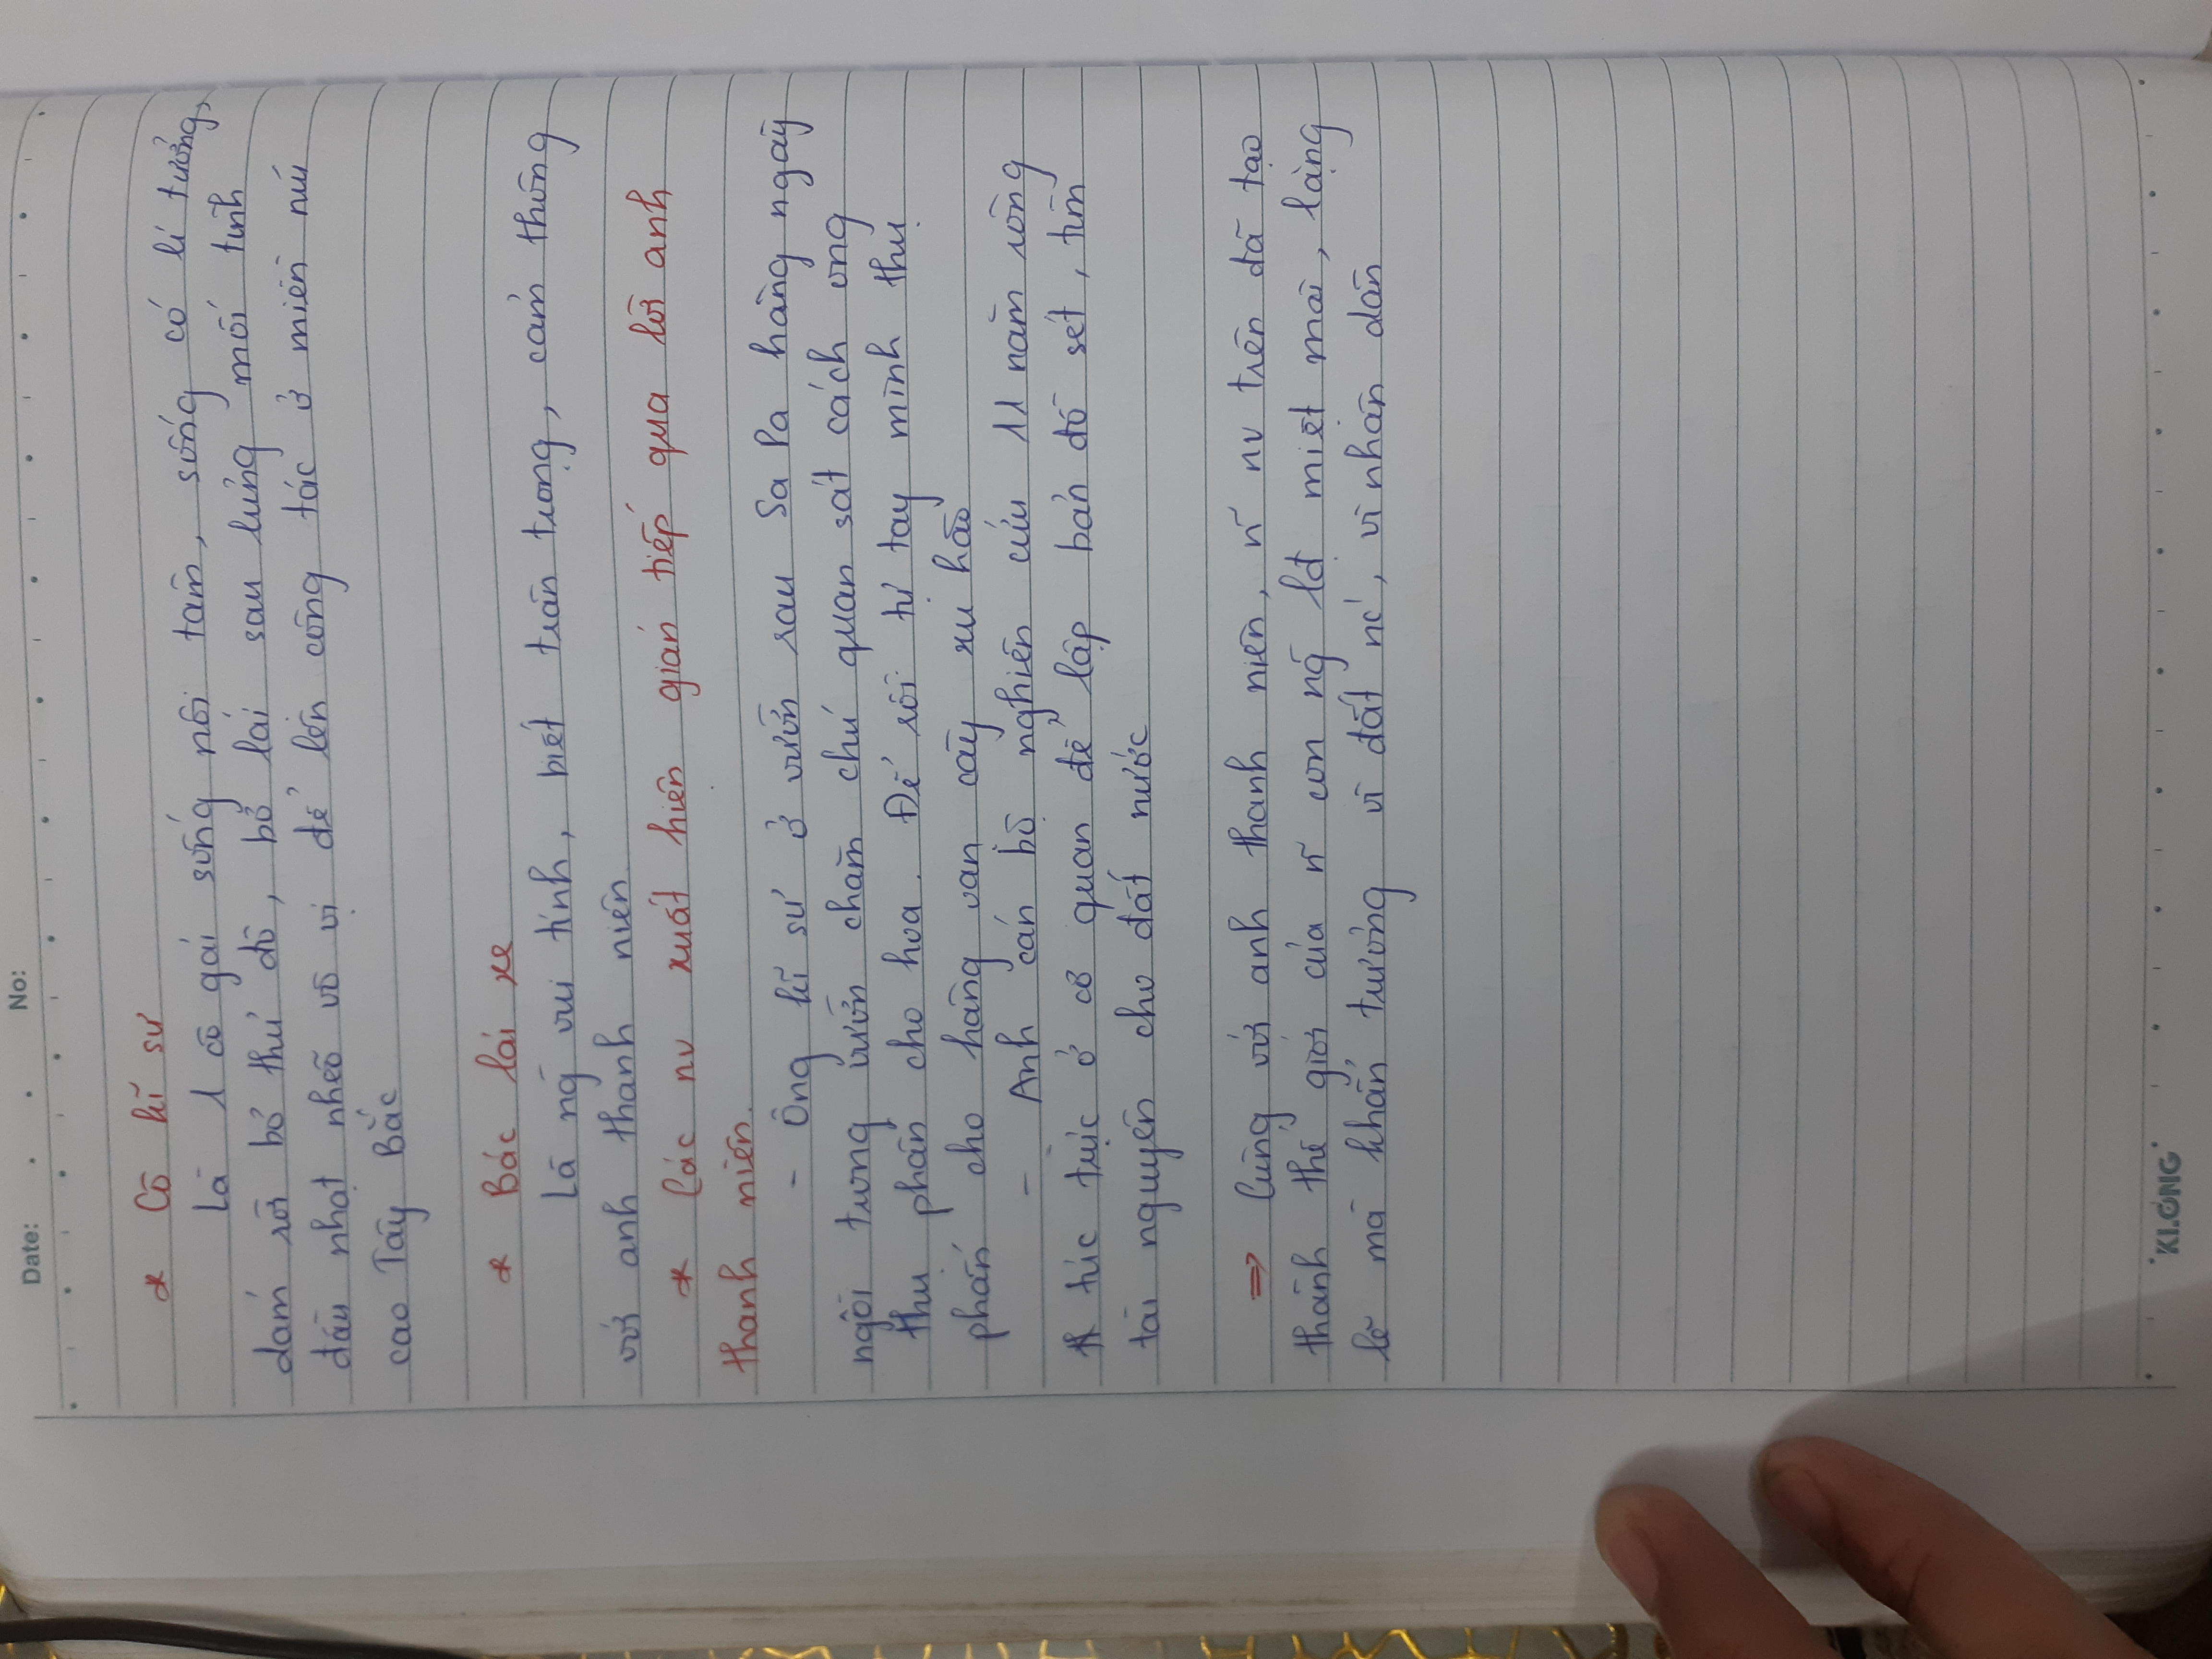 Date: . . No:
* Cô kĩ sư
Là 1 cô gái sống nội tâm, sống có lí tưởng,
dám rời bỏ thủ đô, bỏ lại sau lưng mối tình
đầu nhạt nhẽo vô vị để lên công tác ở miền núi
cao Tây Bắc
* Bác lái xe
Là ng̃ vui tính, biết trân trọng, cảm thông
với anh thanh niên
* Các nv xuất hiện gián tiếp qua lời anh
thanh niên.
- Ông kĩ sư ở vườn rau Sa Pa hàng ngày
ngồi trong vườn chăm chú quan sát cách ong
thụ phấn cho hoa. Để rồi tự tay mình thụ
phấn cho hàng vạn cây xu hào
- Anh cán bộ nghiên cứu 11 năm ròng
túc trực ở cơ quan để lập bản đồ sét, tìm
tài nguyên cho đất nước
=> Cùng với anh thanh niên, ñ nv trên đã tạo
thành thế giới của ñ con ng̃ lđ miệt mài, lặng
lẽ mà khẩn trương vì đất nc', vì nhân dân
KLONG